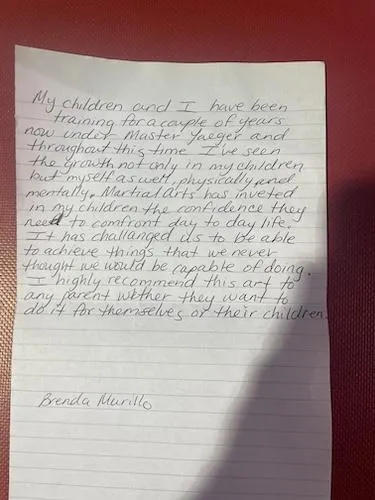 My children and I have been
training for a couple of years
now under Master Yaeger and
throughout this time I've seen
the growth not only in my children
but myself as well, physically and
mentally. Martial arts has inveted
in my children the confidence they
need to comfront day to day life.
It has challanged us to be able
to achieve things that we never
thought we would be capable of doing.
I highly recommend this art to
any parent wether they want to
do it for themselves or their children.
Brenda Murillo